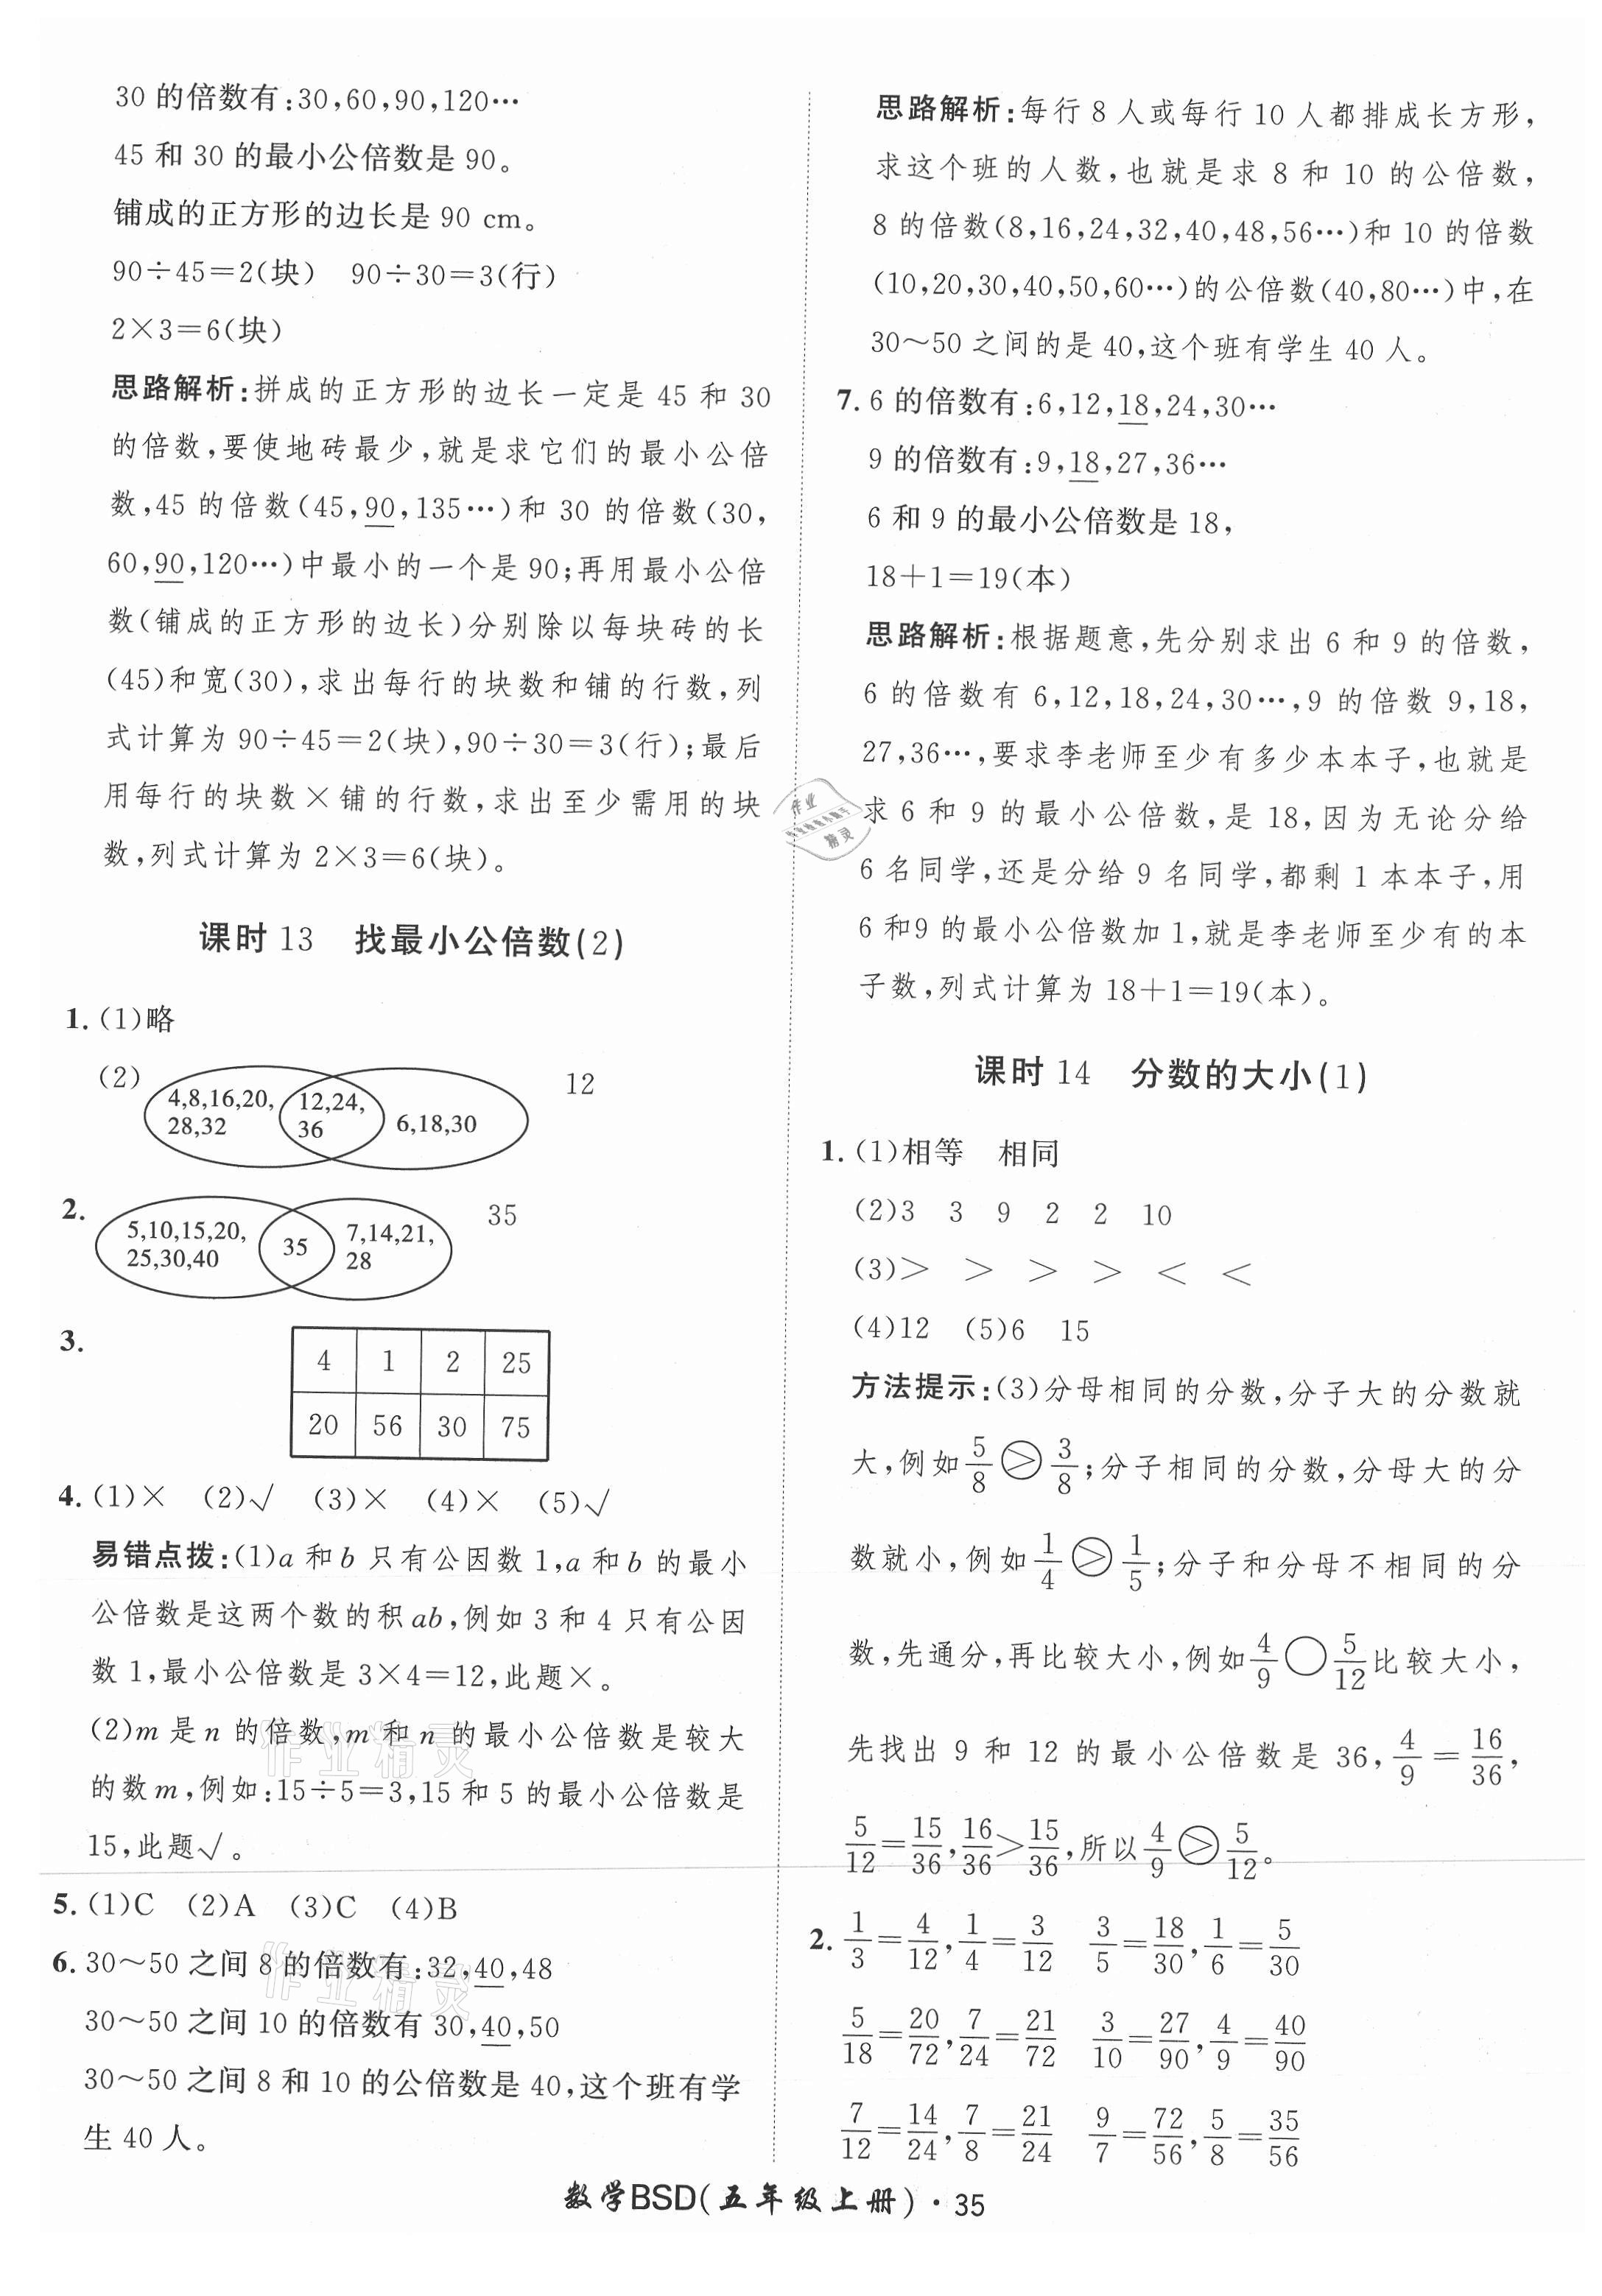 30 的倍数有:30,60,90,120…
45 和 30 的最小公倍数是 90。
铺成的正方形的边长是 90 cm。
90÷45=2(块)　90÷30=3(行)
2×3=6(块)
思路解析:拼成的正方形的边长一定是 45 和 30
的倍数,要使地砖最少,就是求它们的最小公倍
数,45 的倍数(45,90,135…)和 30 的倍数(30,
60,90,120…)中最小的一个是 90;再用最小公倍
数(铺成的正方形的边长)分别除以每块砖的长
(45)和宽(30),求出每行的块数和铺的行数,列
式计算为 90÷45=2(块),90÷30=3(行);最后
用每行的块数×铺的行数,求出至少需用的块
数,列式计算为 2×3=6(块)。
课时 13　找最小公倍数(2)
1. (1)略
(2) 4,8,16,20, 12,24, 6,18,30 12
28,32 36
2. 5,10,15,20, 35 7,14,21, 35
25,30,40 28
3.
4 1 2 25
20 56 30 75
4. (1)× (2)√ (3)× (4)× (5)√
易错点拨:(1)a 和 b 只有公因数 1,a 和 b 的最小
公倍数是这两个数的积 ab,例如 3 和 4 只有公因
数 1,最小公倍数是 3×4=12,此题×。
(2)m 是 n 的倍数,m 和 n 的最小公倍数是较大
的数 m,例如:15÷5=3,15 和 5 的最小公倍数是
15,此题√。
5. (1)C (2)A (3)C (4)B
6. 30～50 之间 8 的倍数有:32,40,48
30～50 之间 10 的倍数有 30,40,50
30～50 之间 8 和 10 的公倍数是 40,这个班有学
生 40 人。
思路解析:每行 8 人或每行 10 人都排成长方形,
求这个班的人数,也就是求 8 和 10 的公倍数,
8 的倍数(8,16,24,32,40,48,56…)和 10 的倍数
(10,20,30,40,50,60…)的公倍数(40,80…)中,在
30～50 之间的是 40,这个班有学生 40 人。
7. 6 的倍数有:6,12,18,24,30…
9 的倍数有:9,18,27,36…
6 和 9 的最小公倍数是 18,
18+1=19(本)
思路解析:根据题意,先分别求出 6 和 9 的倍数,
6 的倍数有 6,12,18,24,30…,9 的倍数 9,18,
27,36…,要求李老师至少有多少本本子,也就是
求 6 和 9 的最小公倍数,是 18,因为无论分给
6 名同学,还是分给 9 名同学,都剩 1 本本子,用
6 和9 的最小公倍数加 1,就是李老师至少有的本
子数,列式计算为 18+1=19(本)。
课时 14　分数的大小(1)
1. (1)相等　相同
(2)3 3 9 2 2 10
(3)> > > > < <
(4)12 (5)6 15
方法提示:(3)分母相同的分数,分子大的分数就
大,例如 5/8 > 3/8;分子相同的分数,分母大的分
数就小,例如 1/4 > 1/5;分子和分母不相同的分
数,先通分,再比较大小,例如 4/9 ○ 5/12 比较大小,
先找出 9 和 12 的最小公倍数是 36, 4/9 = 16/36,
5/12 = 15/36, 16/36 > 15/36,所以 4/9 > 5/12。
2. 1/3 = 4/12, 1/4 = 3/12　3/5 = 18/30, 1/6 = 5/30
5/18 = 20/72, 7/24 = 21/72　3/10 = 27/90, 4/9 = 40/90
7/12 = 14/24, 7/8 = 21/24　9/7 = 72/56, 5/8 = 35/56
数学BSD(五年级上册)·35
作业精灵
作业精灵
作业
精灵